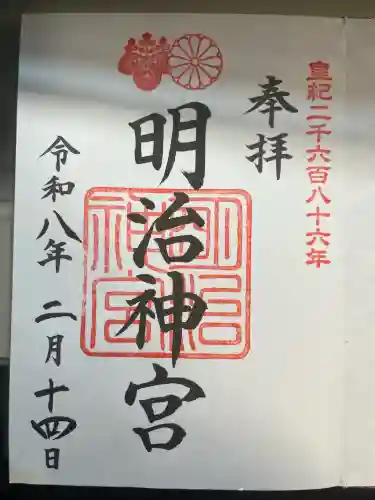 皇紀二千六百八十六年
奉拝
明治神宮
明治神宮
令和八年 二月十四日